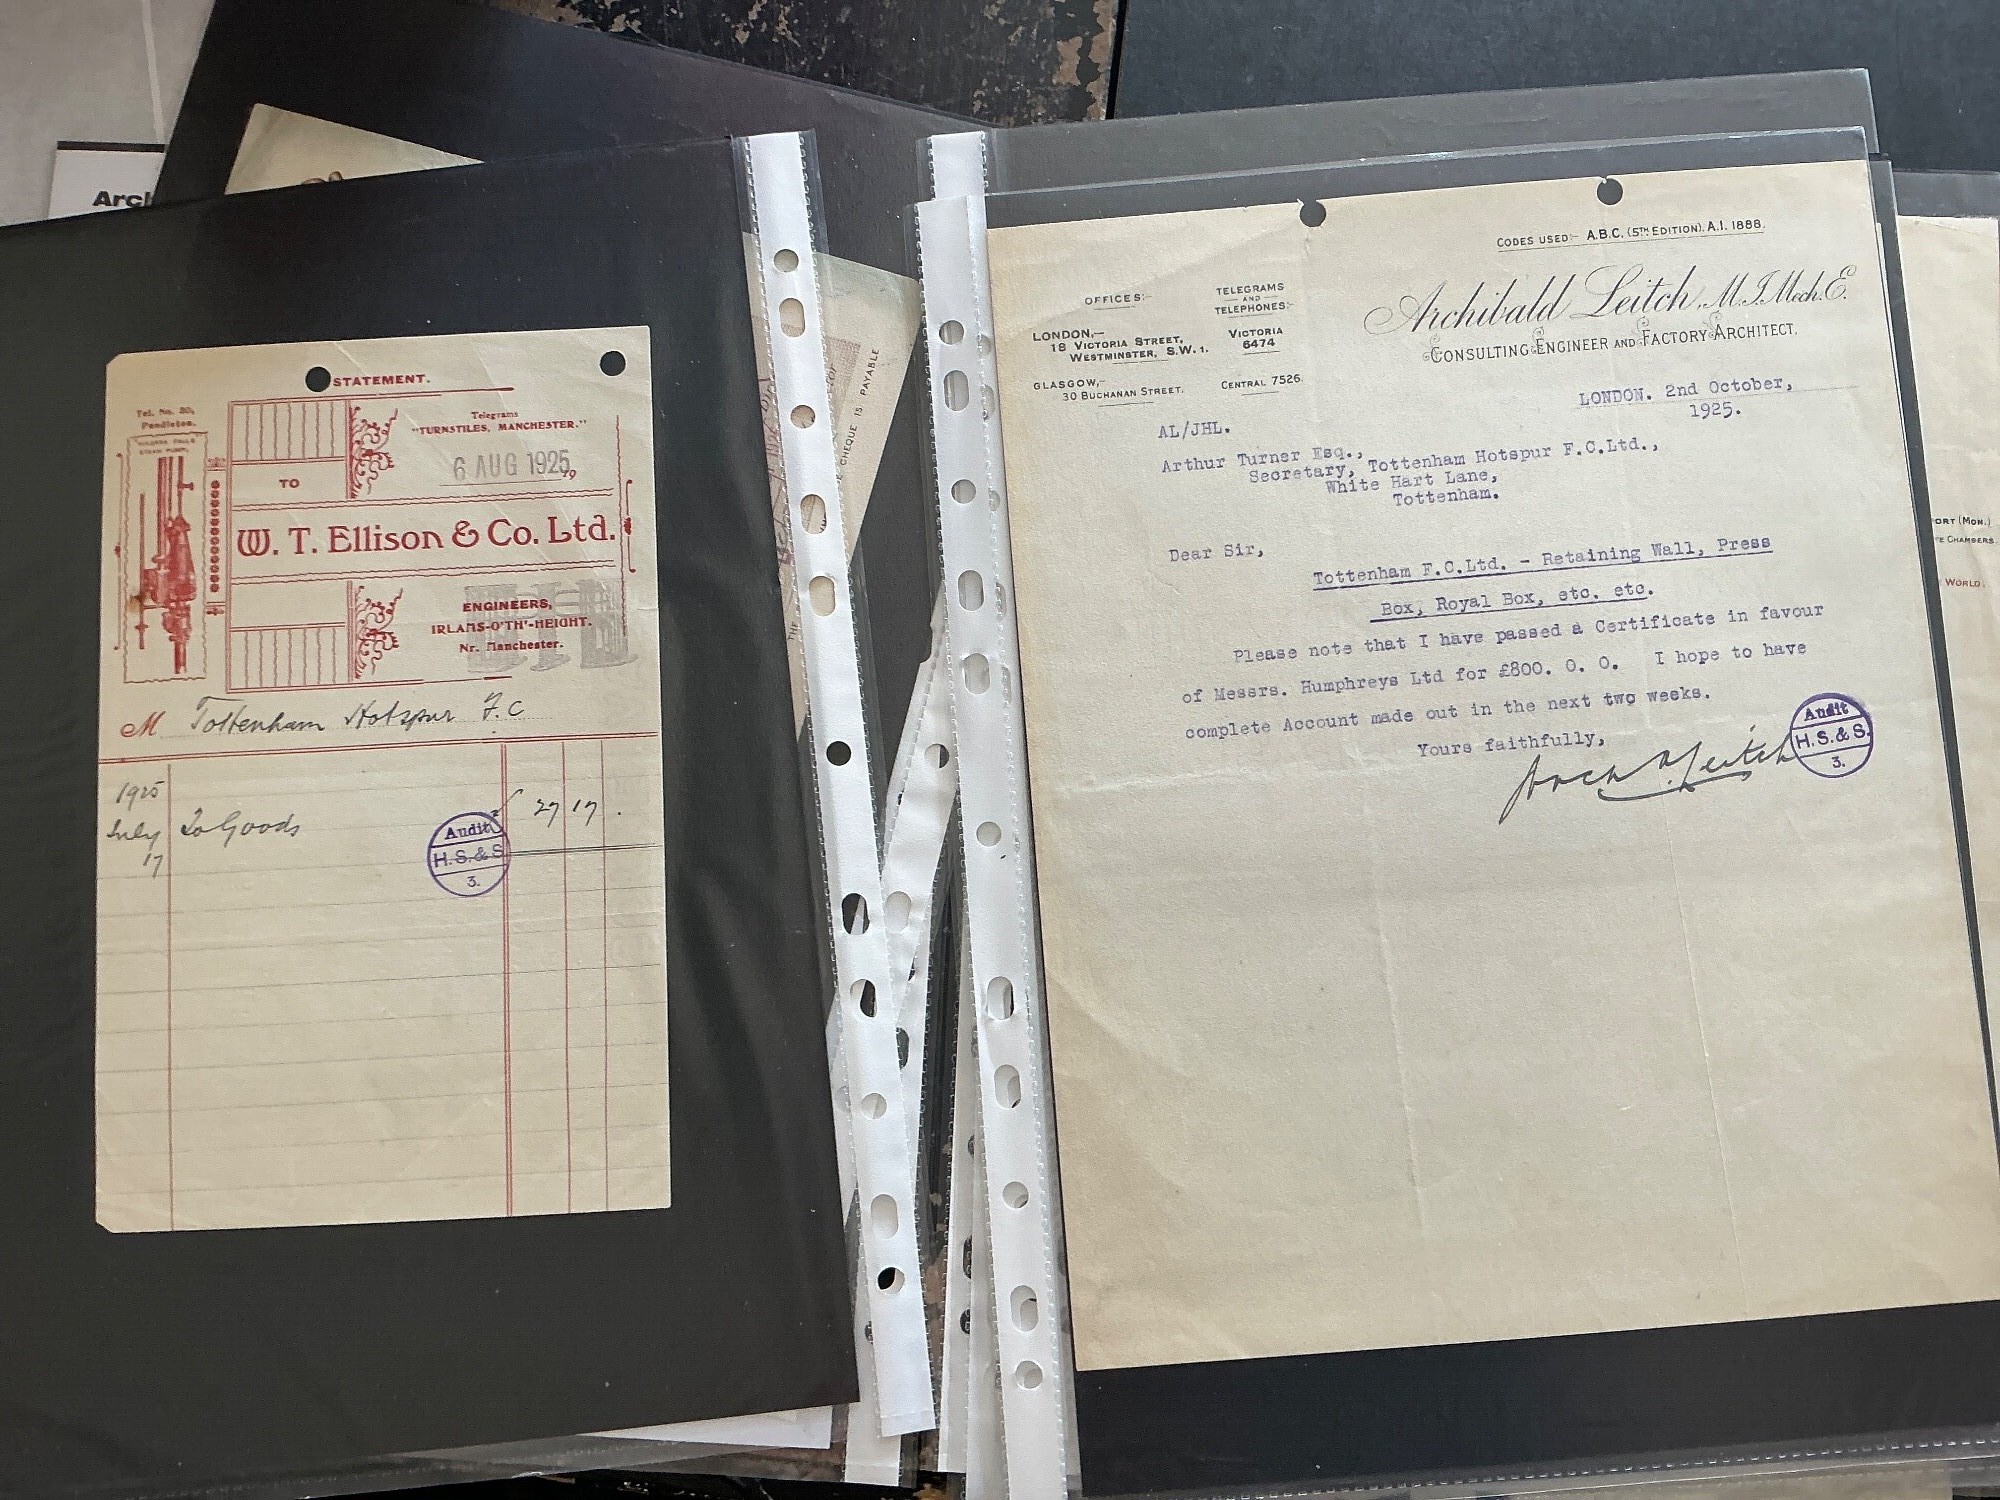 Arch
STATEMENT.
Tel. No. 20,
Pendleton.
Telegrams
"TURNSTILES, MANCHESTER."
6 AUG 1925
19
TO
W. T. Ellison & Co. Ltd.
ENGINEERS,
IRLAMS-O'TH'-HEIGHT.
Nr. Manchester.
M Tottenham Hotspur F.C
1925
July
17
To Goods
27 17 .
Audit
H.S.&S
3.
CHEQUE IS PAYABLE
THE
CODES USED:- A.B.C. (5TH EDITION). A.I. 1888.
OFFICES:-
LONDON,-
18 VICTORIA STREET,
WESTMINSTER, S.W.1.
GLASGOW,-
30 BUCHANAN STREET.
TELEGRAMS
AND
TELEPHONES:-
VICTORIA
6474
CENTRAL 7526
Archibald Leitch, M.I.Mech.E.
CONSULTING ENGINEER AND FACTORY ARCHITECT.
LONDON. 2nd October,
1925.
AL/JHL.
Arthur Turner Esq.,
Secretary, Tottenham Hotspur F.C.Ltd.,
White Hart Lane,
Tottenham.
Dear Sir,
Tottenham F.C.Ltd. - Retaining Wall, Press
Box, Royal Box, etc. etc.
Please note that I have passed a Certificate in favour
of Messrs. Humphreys Ltd for £800. 0. 0. I hope to have
complete Account made out in the next two weeks.
Yours faithfully,
Arch Leitch
Audit
H.S.&S.
3.
ORT (MON.)
E CHAMBERS.
WORLD.